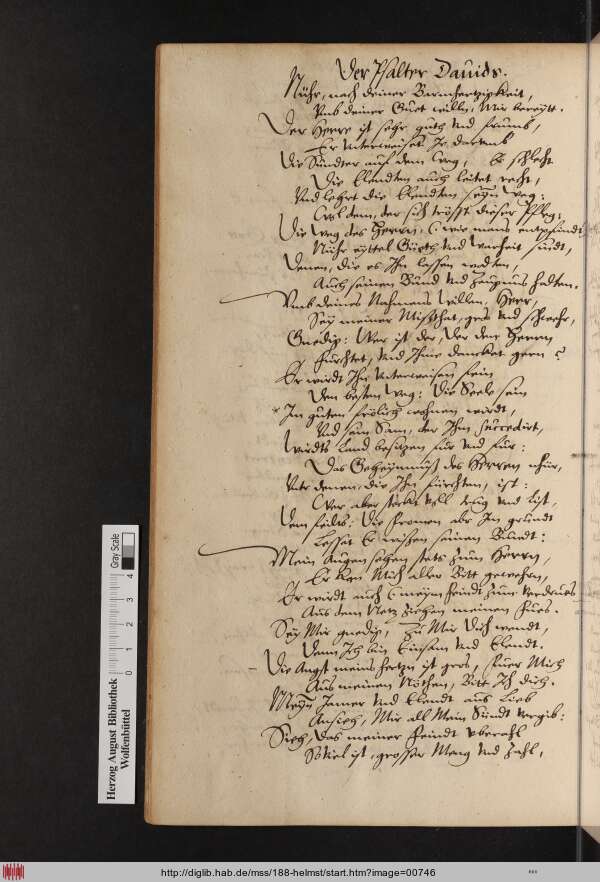 Der Psalter Dauids.
Nuhr, nach deiner Barmhertzigkeit,
Vmb deiner Guet willn, Mir bereytt.
Der Herre ist sehr gutt vnd frumb,
Er Vnterweiset Je darumb
Die Sünder auf dem Weg, Er schlecht
Die Elendten auch leitet recht,
Vnd lehrt die Elendten seyn Weg:
der sich tröst dieser Pfleg,
Die Weg des Herrn, wie mans entpfindt
Nuhr eyttel Gütt vnd Warheit sindt,
Denen, die es Ihn lassen walten,
Auch seinen Bund vnd Zeugnus halten.
Vmb deines Nahmens Willen, Herr,
Sey meiner Missthat, gros vnd schwehr,
Gnedig: Wer ist der, der den Herrn
Furchtet, vnd Ihme dancket gern?
Er wirdt Ihn Vnterweisen fein
Den besten Weg: Die Seele sein
Im guten frölich wohnen wirdt,
Vnd sein Sam, der Ihm succedirt,
Wirdts Land besizen fur vnd fur:
Das Geheymnuß des Herren
denen, die Ihn fürchten, ist:
Wer aber steckt voll trug vnd list,
Dem feilts: Die fromen abr Im grundt
Lesset Er wissen seinen Bundt:
Mein Augen sehen stets zum Herrn,
Er kan Mich aller Bitt gewehrn,
Er wirdt auch meym feindt zum Verdrues
Aus dem Netz ziehen meinen Fues.
Sey Mir gnedig, Zu Mir dich wendt,
Denn Ich bin Einsam vnd Elendt.
Die Angst meins hertzn ist gros, fuer Mich
Aus meinen Nöthen, Bitt Ich dich.
Meyn Jamer vnd Elendt aus Lieb
Ansieh, Mir all Mein Sundt vergib:
Sieh, das meiner Feindt vberahl
Soviel ist, grosser Meng vnd Zahl,
Herzog August Bibliothek
Wolfenbüttel
Gray Scale
0 1 2 3 4
http://diglib.hab.de/mss/188-helmst/start.htm?image=00746